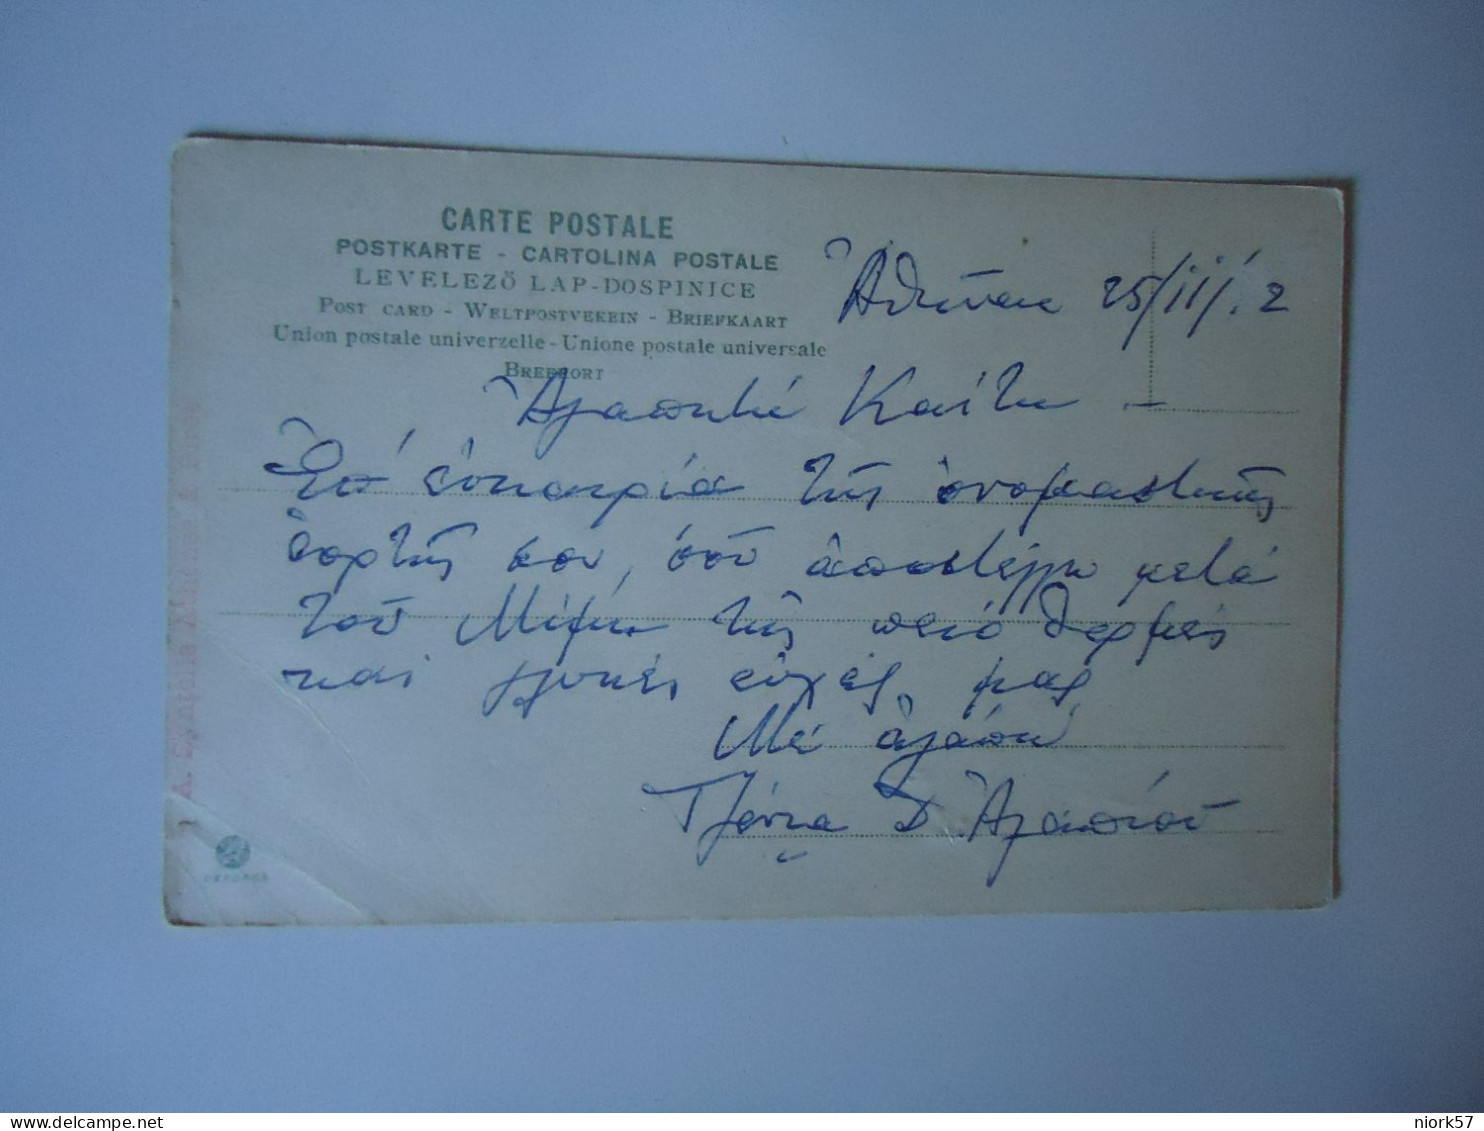 CARTE POSTALE
POSTKARTE - CARTOLINA POSTALE
LEVELEZŐ LAP-DOSPINICE
POST CARD - WELTPOSTVEREIN - BRIEFKAART
Union postale univerzelle - Unione postale universale
BREFKORT
Ἀθῆναι 25/ii/.2
Ἀγαπητή Καίτη –
Ἐπ' εὐκαιρίᾳ τῆς ὀνομαστικῆς
ἑορτῆς σου, σοῦ ἀποστέλλω μετά
τοῦ Μίμη τῆς πειό θερμές
και γλυκές εὐχές μας
Μέ ἀγάπη
Τζένια Δ. Ἀγαπίου
niork57